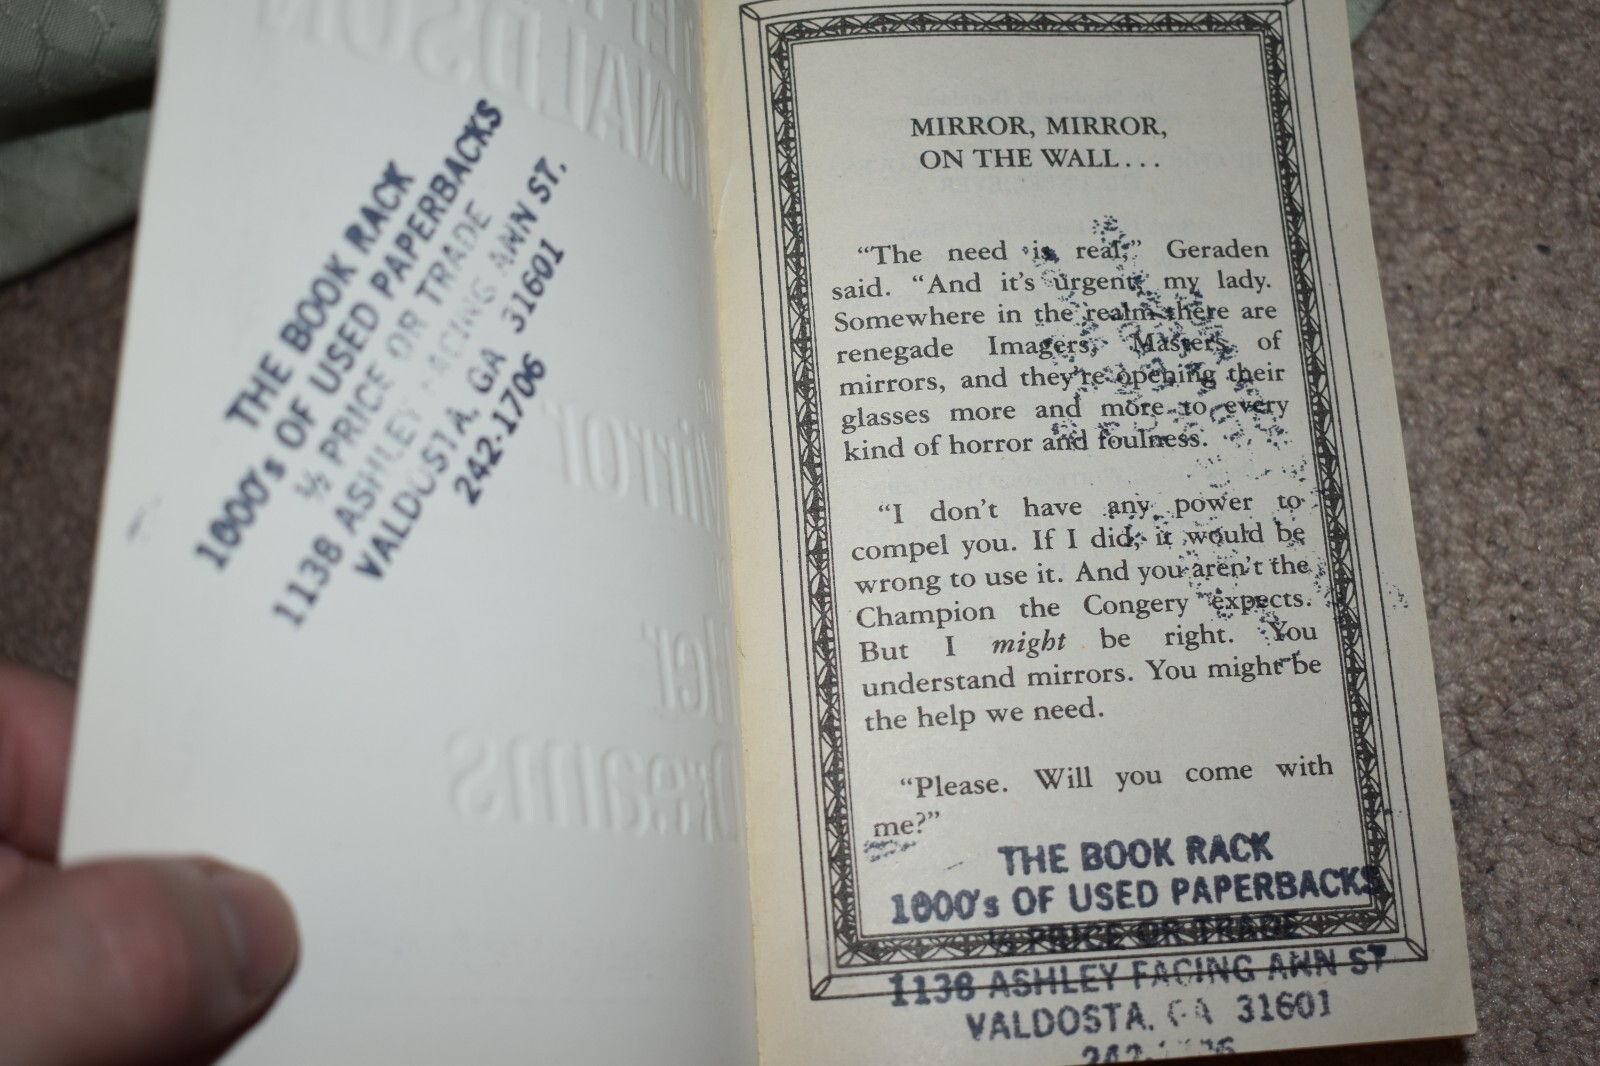 THE BOOK RACK
1000's OF USED PAPERBACKS
½ PRICE OR TRADE
1138 ASHLEY FACING ANN ST.
VALDOSTA, GA 31601
242-1706
DONALDSON
Mirror
Her
Dreams
MIRROR, MIRROR,
ON THE WALL...
“The need is real,” Geraden
said. “And it's urgent, my lady.
Somewhere in the realm there are
renegade Imagers, Masters of
mirrors, and they're opening their
glasses more and more to every
kind of horror and foulness.
“I don't have any power to
compel you. If I did, it would be
wrong to use it. And you aren't the
Champion the Congery expects.
But I might be right. You
understand mirrors. You might be
the help we need.
“Please. Will you come with
me?”
THE BOOK RACK
1000's OF USED PAPERBACKS
½ PRICE OR TRADE
1138 ASHLEY FACING ANN ST
VALDOSTA, GA 31601